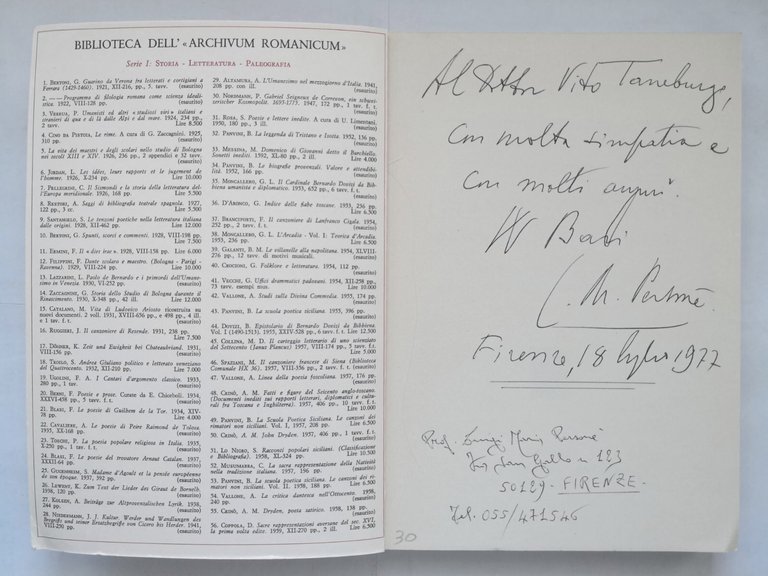 BIBLIOTECA DELL'«ARCHIVUM ROMANICUM»
Serie I: STORIA - LETTERATURA - PALEOGRAFIA
1. BERTONI, G. Guarino da Verona fra letterati e cortigiani a
Ferrara (1429-1460). 1921, XII-216, pp., 5 tavv. (esaurito)
2. —— Programma di filologia romanza come scienza idealistica.
1922, VIII-128 pp. (esaurito)
3. VERRUA, P. Umanisti ed altri «studiosi viri» italiani e
stranieri di qua e di là dalle Alpi e dal mare. 1924, 234 pp.,
2 tavv. Lire 8.500
4. CINO DA PISTOIA, Le rime. A cura di G. Zaccagnini. 1925,
310 pp. (esaurito)
5. La vita dei maestri e degli scolari nello studio di Bologna
nei secoli XIII e XIV. 1926, 236 pp., 2 appendici e 32 tavv.
(esaurito)
6. JORDAN, L. Les idées, leurs rapports et le jugement de
l'homme. 1926, X-234 pp. Lire 10.000
7. PELLEGRINI, C. Il Sismondi e la storia della letteratura dell'Europa
meridionale. 1926, 168 pp. Lire 5.500
8. RESTORI, A. Saggi di bibliografia teatrale spagnola. 1927,
122 pp., 3 cc. Lire 5.500
9. SANTANGELO, S. Le tenzoni poetiche nella letteratura italiana
dalle origini. 1928, XII-462 pp. Lire 12.000
10. BERTONI, G. Spunti, scorci e commenti. 1928, VIII-198 pp.
Lire 7.500
11. ERMINI, F. Il «dies irae». 1928, VIII-158 pp. Lire 6.000
12. FILIPPINI, F. Dante scolaro e maestro. (Bologna - Parigi -
Ravenna). 1929, VIII-224 pp. Lire 10.000
13. LAZZARINI, L. Paolo de Bernardo e i primordi dell'Umanesimo
in Venezia. 1930, VI-232 pp. (esaurito)
14. ZACCAGNINI, G. Storia dello Studio di Bologna durante il
Rinascimento. 1930, X-348 pp., 42 ill. Lire 12.000
15. CATALANO, M. Vita di Ludovico Ariosto ricostruita su
nuovi documenti. 2 voll. 1931, XVIII-636 pp., e 498 pp., 4 ill.
e 1 tav. (esaurito)
16. RUGGIERI, J. Il canzoniere di Resende. 1931, 238 pp.
Lire 7.500
17. DÖHNER, K. Zeit und Ewigkeit bei Chateaubriand. 1931,
VIII-156 pp. (esaurito)
18. TROILO, S. Andrea Giuliano politico e letterato veneziano
del Quattrocento. 1932, XII-210 pp. Lire 7.000
19. UGOLINI, F. A. I Cantari d'argomento classico. 1933,
280 pp., 1 tav. (esaurito)
20. BERNI, F. Poesie e prose. Curate da E. Chiorboli. 1934,
XXXVI-458 pp., 5 tavv. e 1 ill. (esaurito)
21. BLASI, F. Le poesie di Guilhem de la Tor. 1934, XIV-78
pp. Lire 4.000
22. CAVALIERE, A. Le poesie di Peire Raimond de Tolosa.
1935, XX-168 pp. (esaurito)
23. TOSCHI, P. La poesia popolare religiosa in Italia. 1935,
X-250 pp., 1 tav. f. t. (esaurito)
24. BLASI, F. Le poesie del trovatore Arnaut Catalan. 1937,
XXXII-64 pp. (esaurito)
25. GUGENHEIM, S. Madame d'Agoult et la pensée européenne
de son époque. 1937, 392 pp. (esaurito)
26. LEWENT, K. Zum Text der Lieder des Giraut de Bornelh.
1938, 120 pp. (esaurito)
27. KOLSEN, A. Beiträge zur Altprovenzalischen Lyrik. 1938,
244 pp. (esaurito)
28. NIEDERMANN, J. J. Kultur Werden und Wandlungen des
Begriffs und seiner Ersatzbegriffe von Cicero bis Herder. 1941,
VIII-250 pp. (esaurito)
29. ALTAMURA, A. L'Umanesimo nel mezzogiorno d'Italia. 1941,
208 pp. con ill. (esaurito)
30. NORDMANN, P. Gabriel Seigneux de Correvon, ein schweizerischer
Kosmopolit. 1695-1775. 1947, 172 pp., 1 tav. f. t.
(esaurito)
31. ROSA, S. Poesie e lettere inedite. A cura di U. Limentani.
1950, 180 pp., 3 ill. (esaurito)
32. PANVINI, B. La leggenda di Tristano e Isotta. 1952, 156 pp.
(esaurito)
33. MESSINA, M. Domenico di Giovanni detto il Burchiello.
Sonetti inediti. 1952, XL-80 pp., 2 ill. Lire 4.000
34. PANVINI, B. Le biografie provenzali. Valore e attendibilità.
1952, 166 pp. (esaurito)
35. MONCALLERO, G. L. Il Cardinale Bernardo Dovizi da Bibbiena
umanista e diplomatico. 1953, 652 pp., 6 tavv. f. t.
(esaurito)
36. D'ARONCO, G. Indice delle fiabe toscane. 1953, 236 pp.
Lire 6.500
37. BRANCIFORTI, F. Il canzoniere di Lanfranco Cigala. 1954,
252 pp., 2 tavv. f. t. (esaurito)
38. MONCALLERO, G. L. L'Arcadia - Vol. I: Teorica d'Arcadia.
1953, 236 pp. Lire 6.500
39. GALANTI, B. M. Le villanelle alla napolitana. 1954, XLVIII-276
pp., 12 tavv. di motivi musicali. (esaurito)
40. CROCIONI, G. Folklore e letteratura. 1954, 112 pp.
(esaurito)
41. VECCHI, G. Uffici drammatici padovani. 1954, XII-258 pp.,
73 tavv. esempi mus. Lire 10.000
42. VALLONE, A. Studi sulla Divina Commedia. 1955, 174 pp.
(esaurito)
43. PANVINI, B. La scuola poetica siciliana. 1955, 396 pp.
(esaurito)
44. DOVIZI, B. Epistolario di Bernardo Dovizi da Bibbiena.
Vol. I (1490-1513). 1955, XXIV-528 pp., 6 tavv. f. t. Lire 12.500
45. COLLINA, M. D. Il carteggio letterario di uno scienziato
del Settecento (Janus Plancus) 1957, VIII-174 pp., 5 tavv. f. t.
Lire 5.000
46. SPAZIANI, M. Il canzoniere francese di Siena (Biblioteca
Comunale HX 36). 1957, VIII-356 pp., 2 tavv. f. t. (esaurito)
47. VALLONE, A. Linea della poesia foscoliana. 1957, 176 pp.
(esaurito)
48. CRINÒ, A. M. Fatti e figure del Seicento anglo-toscano.
(Documenti inediti sui rapporti letterari, diplomatici e culturali
fra Toscana e Inghilterra). 1957, 406 pp., 10 tavv. f. t.
Lire 10.000
49. PANVINI, B. La Scuola Poetica Siciliana. Le canzoni dei
rimatori non siciliani. Vol. I, 1957, 208 pp. Lire 6.500
50. CRINÒ, A. M. John Dryden. 1957, 406 pp., 1 tav. f. t.
(esaurito)
51. LO NIGRO, S. Racconti popolari siciliani. (Classificazione
e Bibliografia). 1958, XL-324 pp. Lire 10.500
52. MUSUMARRA, C. La sacra rappresentazione della Natività
nella tradizione italiana. 1957, 196 pp. (esaurito)
53. PANVINI, B. La scuola poetica siciliana. Le canzoni dei rimatori
non siciliani. Vol. II. 1958, 188 pp. Lire 6.500
54. VALLONE, A. La critica dantesca nell'Ottocento. 1958,
240 pp. (esaurito)
55. CRINÒ, A. M. Dryden, poeta satirico. 1958, 138 pp.
(esaurito)
56. COPPOLA, D. Sacre rappresentazioni aversane del sec. XVI,
la prima volta edite. 1959, XII-270 pp., 2 ill. Lire 6.500
Al Dottor Vito Taneburgo,
con molta simpatia e
con molti auguri.
W Bari
L. M. Personè
Firenze, 18 luglio 1977
Prof. Luigi Maria Personè
Via San Gallo n 123
50129 - FIRENZE -
Tel. 055/471546
30